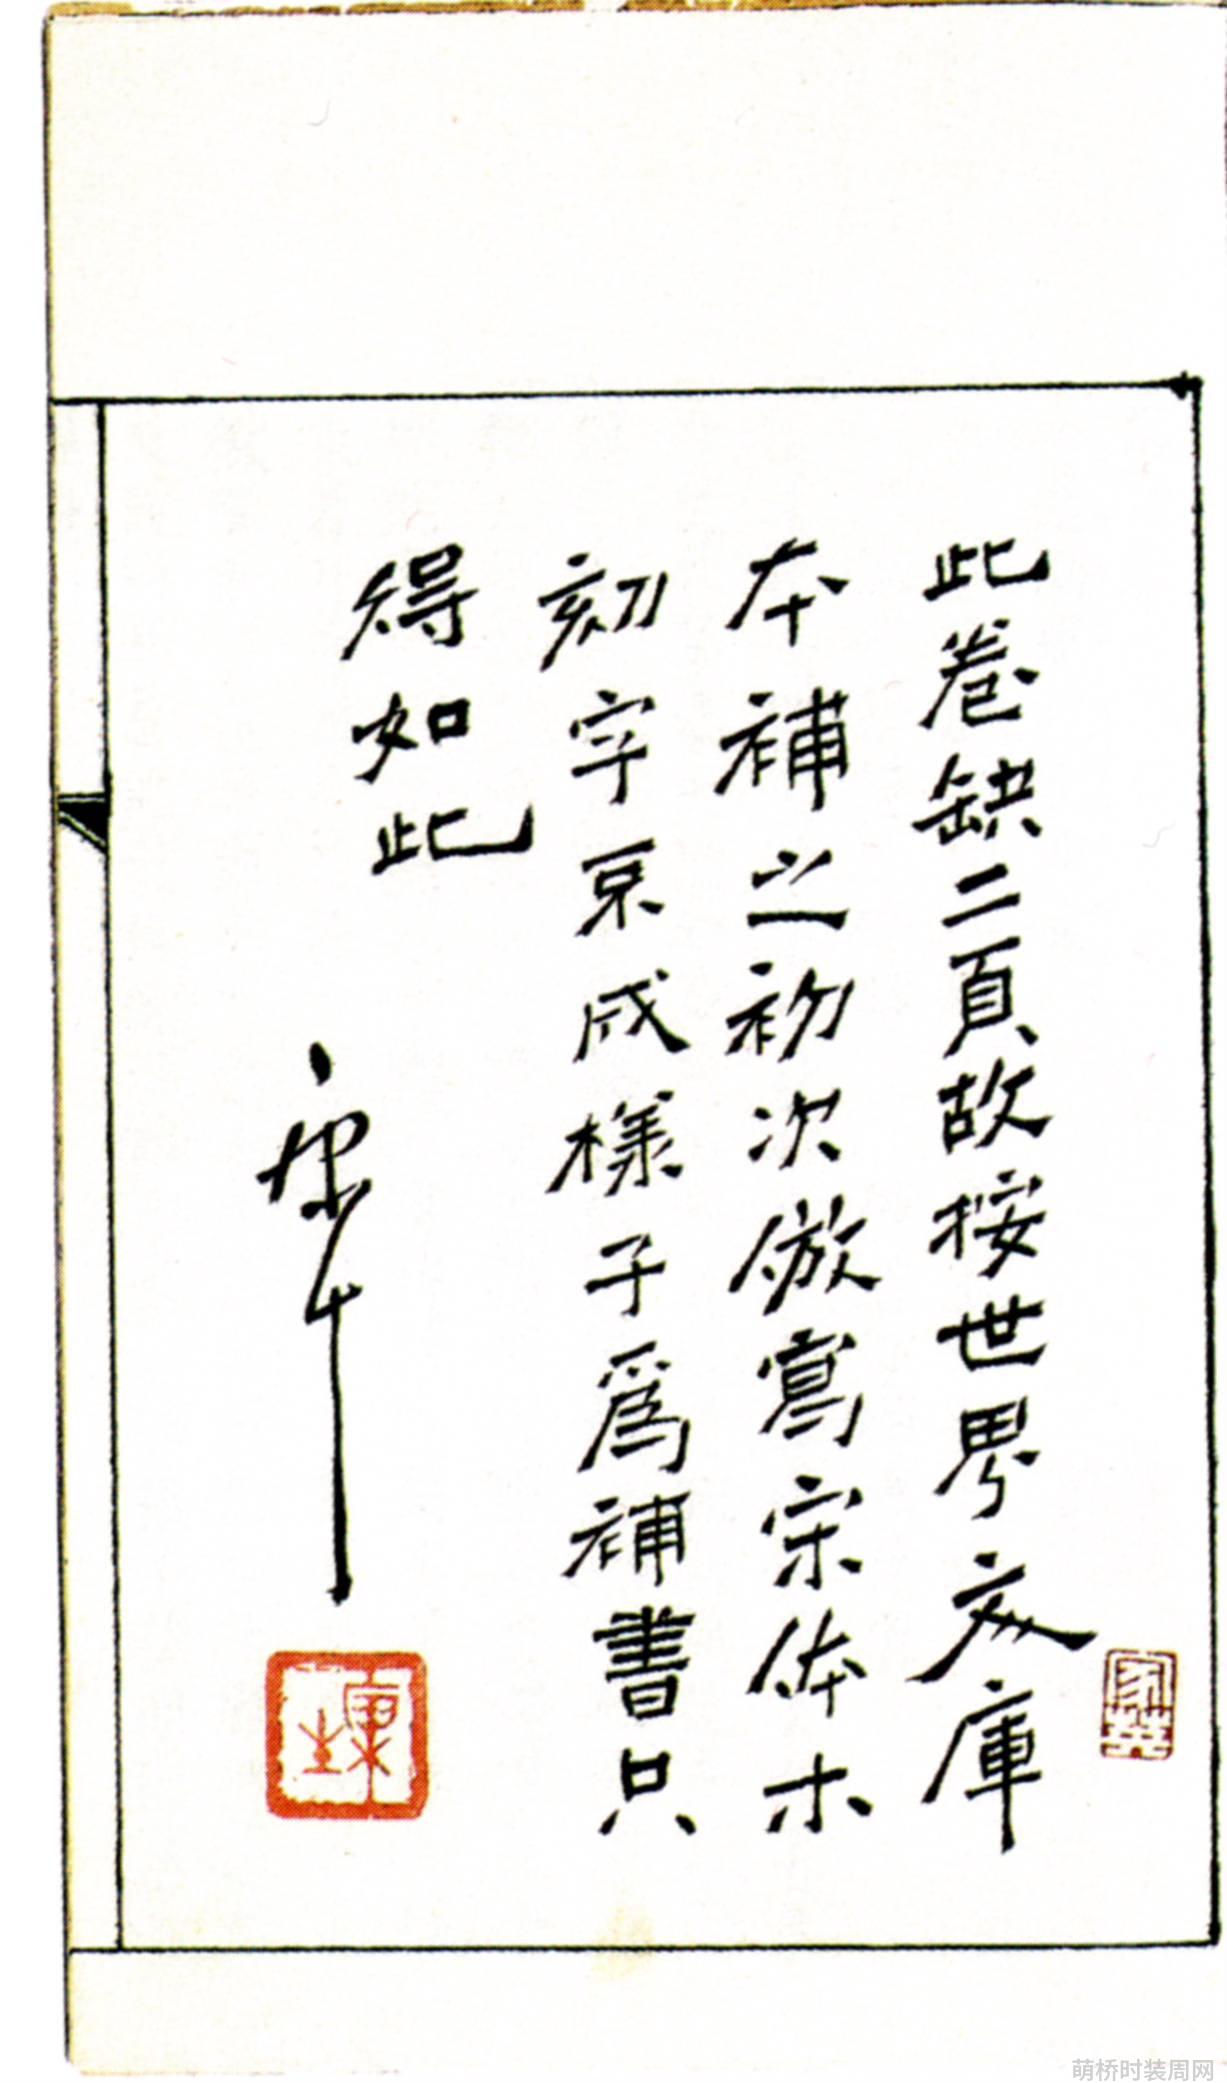 此卷缺二頁故按世界文庫
本補之初次倣寫宗体木
刻字京成樣子爲補書只
得如此
康生
康生
萌桥时装周网